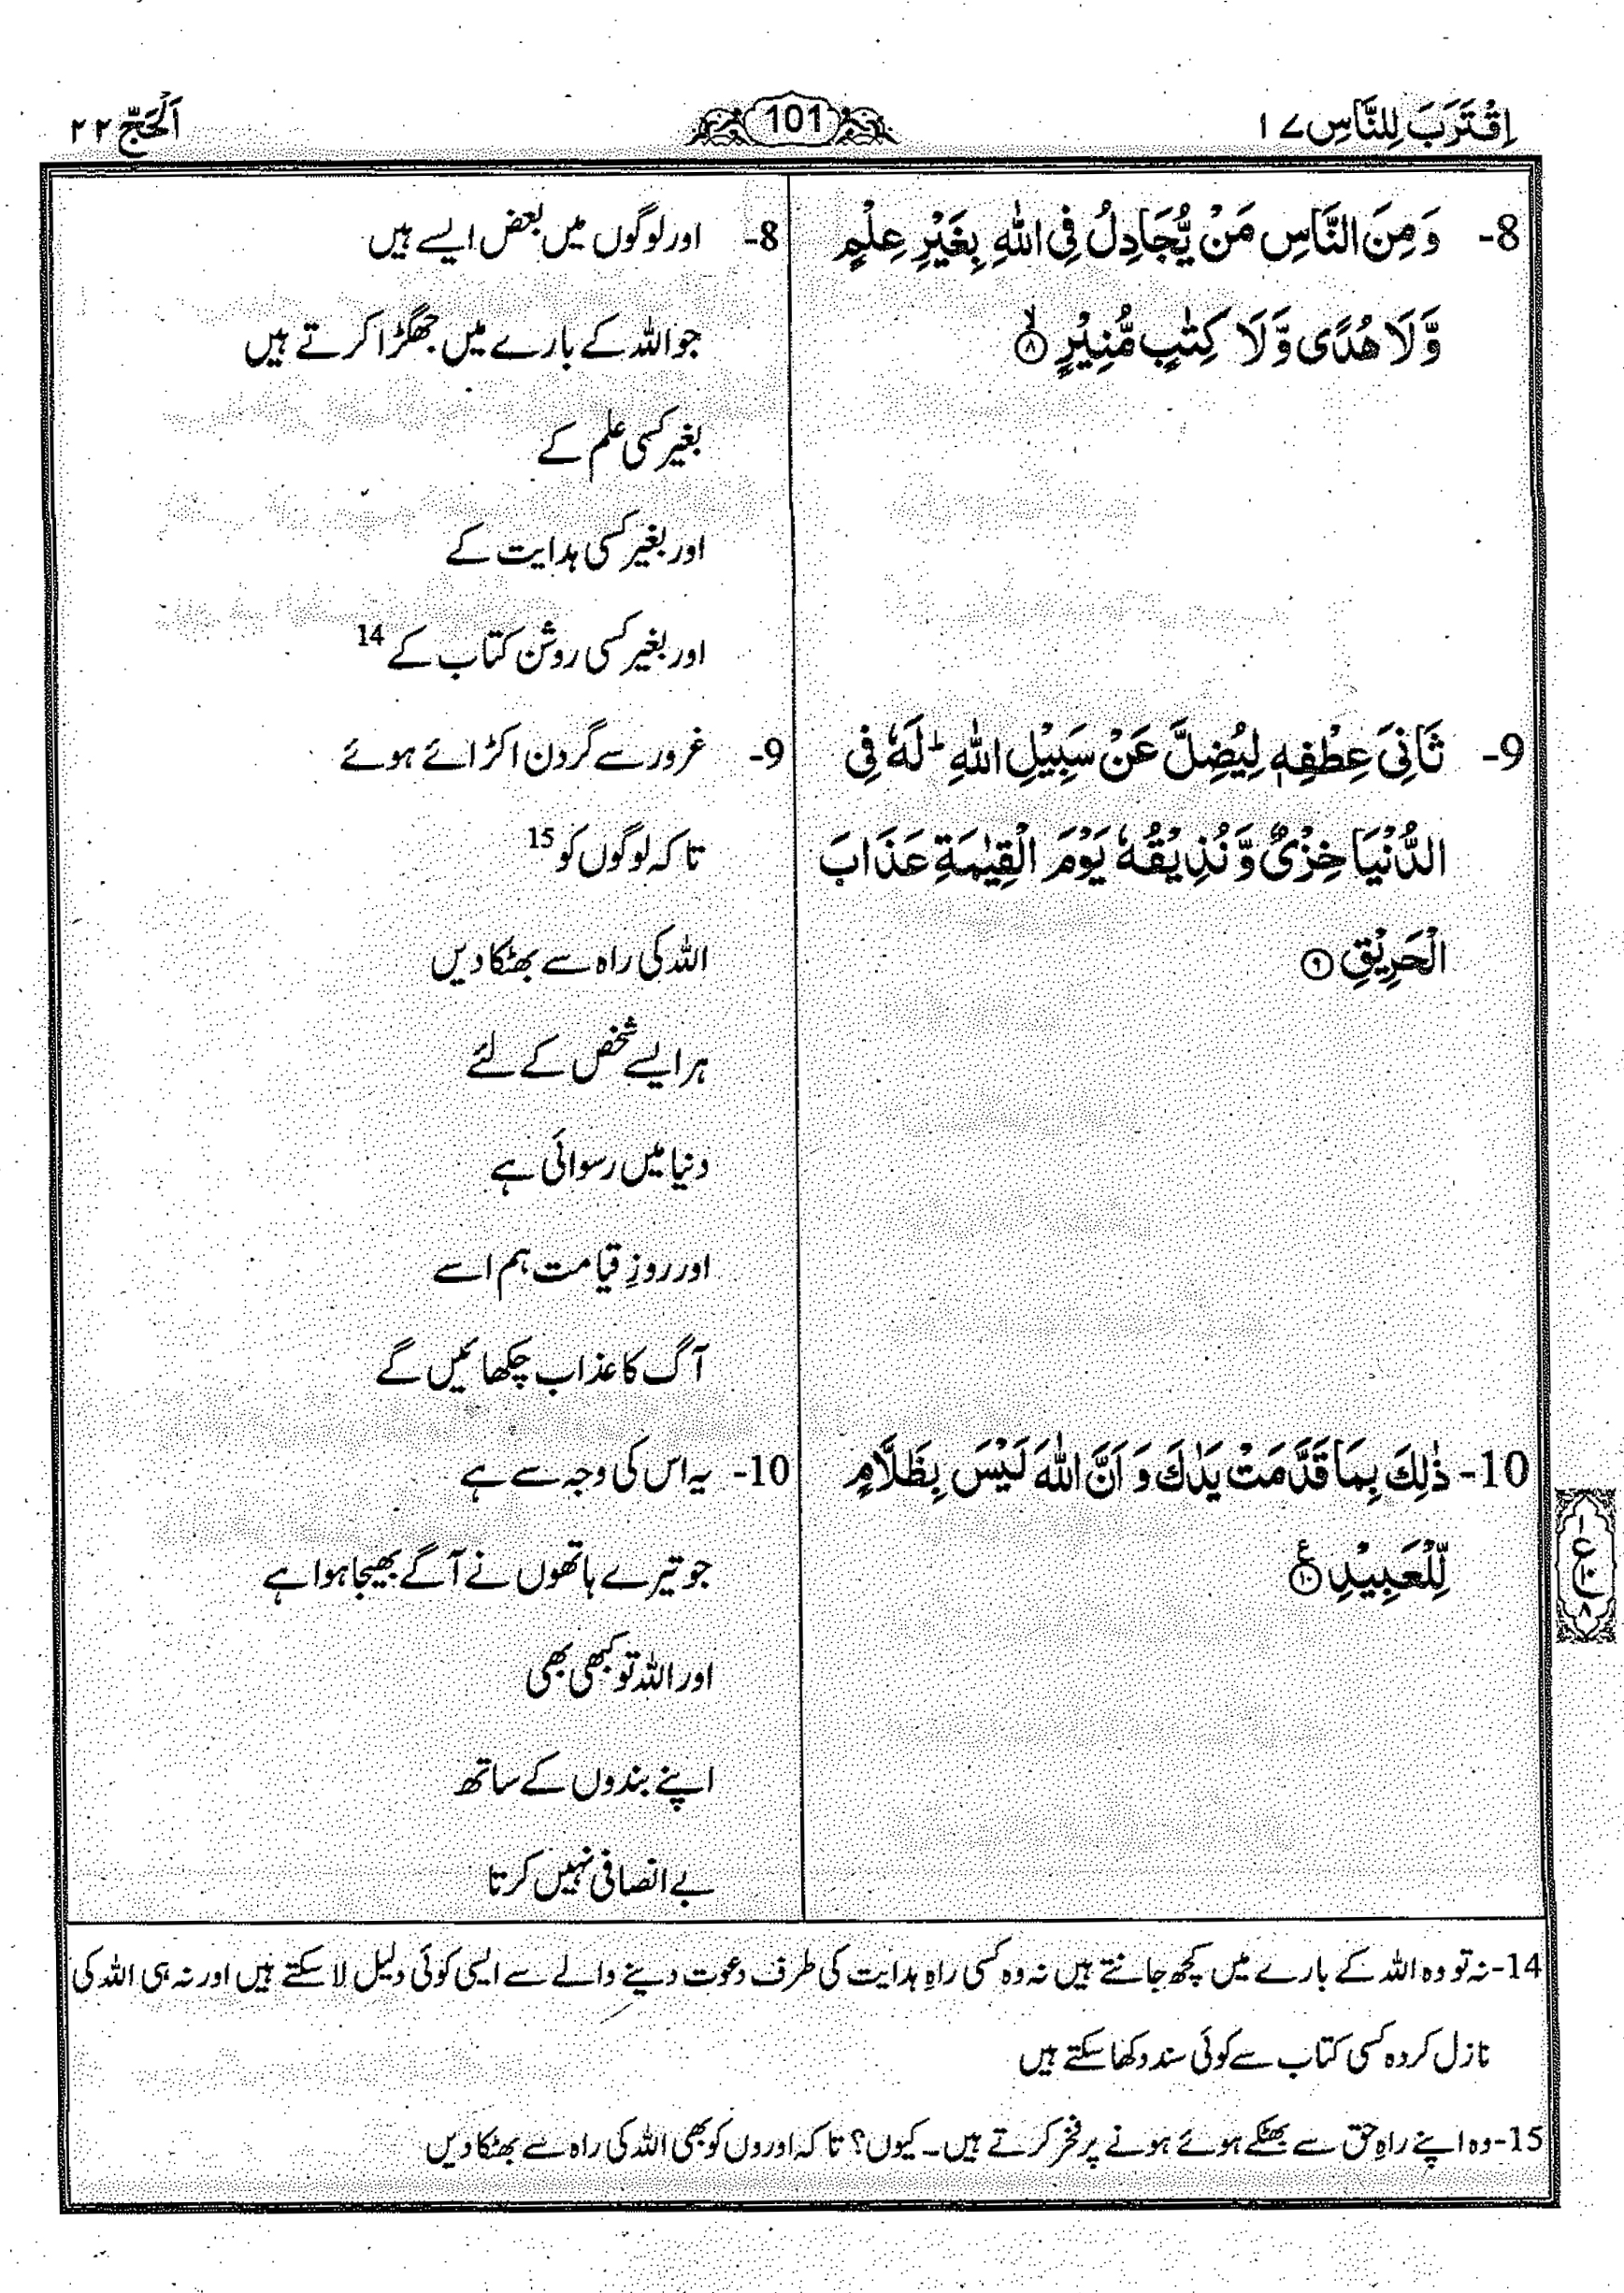 اِقْتَرَبَ لِلنَّاسِ ۱۷
101
اَلْحَجّ ۲۲
8- وَمِنَ النَّاسِ مَنْ يُّجَادِلُ فِى اللّٰهِ بِغَيْرِ عِلْمٍ
وَّلَا هُدًى وَّلَا كِتٰبٍ مُّنِيْرٍ ۙ‏﴿۸﴾
8- اور لوگوں میں بعض ایسے ہیں
جو اللہ کے بارے میں جھگڑا کرتے ہیں
بغیر کسی علم کے
اور بغیر کسی ہدایت کے
اور بغیر کسی روشن کتاب کے 14
9- ثَانِىَ عِطْفِهٖ لِيُضِلَّ عَنْ سَبِيْلِ اللّٰهِ ؕ لَهٗ فِى
الدُّنْيَا خِزْىٌ وَّنُذِيْقُهٗ يَوْمَ الْقِيٰمَةِ عَذَابَ
الْحَرِيْقِ ﴿۹﴾
9- غرور سے گردن اکڑائے ہوئے
تاکہ لوگوں کو 15
اللہ کی راہ سے بھٹکا دیں
ہر ایسے شخص کے لئے
دنیا میں رسوائی ہے
اور روزِ قیامت ہم اسے
آگ کا عذاب چکھائیں گے
10- ذٰلِكَ بِمَا قَدَّمَتْ يَدٰكَ وَ اَنَّ اللّٰهَ لَيْسَ بِظَلَّامٍ
لِّلْعَبِيْدِ ﴿۱۰﴾ ع
10- یہ اس کی وجہ سے ہے
جو تیرے ہاتھوں نے آگے بھیجا ہوا ہے
اور اللہ تو کبھی بھی
اپنے بندوں کے ساتھ
بے انصافی نہیں کرتا
۱
ع
۱۰
۸
14- نہ تو وہ اللہ کے بارے میں کچھ جانتے ہیں نہ وہ کسی راہِ ہدایت کی طرف دعوت دینے والے سے ایسی کوئی دلیل لا سکتے ہیں اور نہ ہی اللہ کی
نازل کردہ کسی کتاب سے کوئی سند دکھا سکتے ہیں
15- وہ اپنے راہِ حق سے بھٹکے ہوئے ہونے پر فخر کرتے ہیں۔ کیوں؟ تاکہ اوروں کو بھی اللہ کی راہ سے بھٹکا دیں